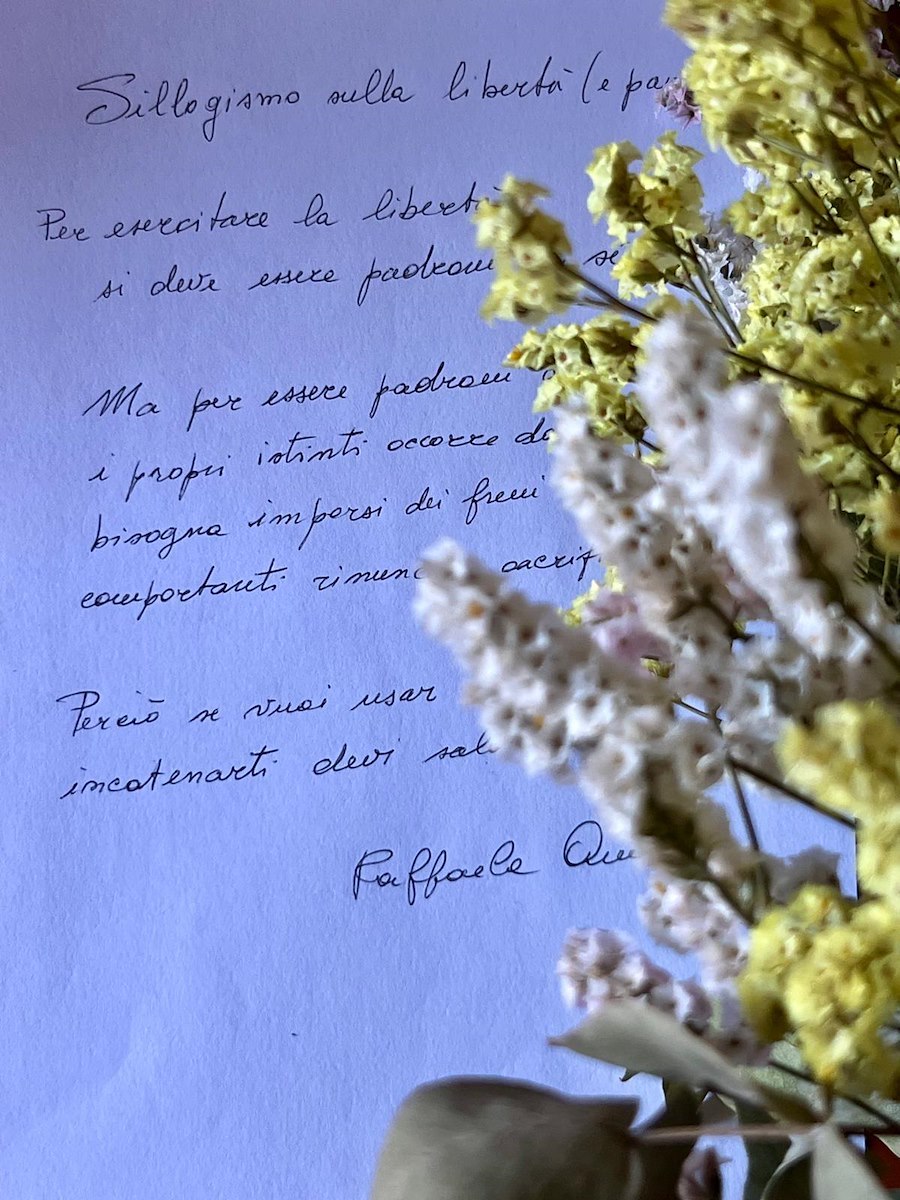 Sillogismo sulla libertà (e pa
Per esercitare la libertà
si deve essere padroni se
Ma per essere padroni
i propri istinti occorre do
bisogna imporsi dei freni
comportanti rinunc sacrif
Perciò se vuoi usar
incatenarti devi sal
Raffaela